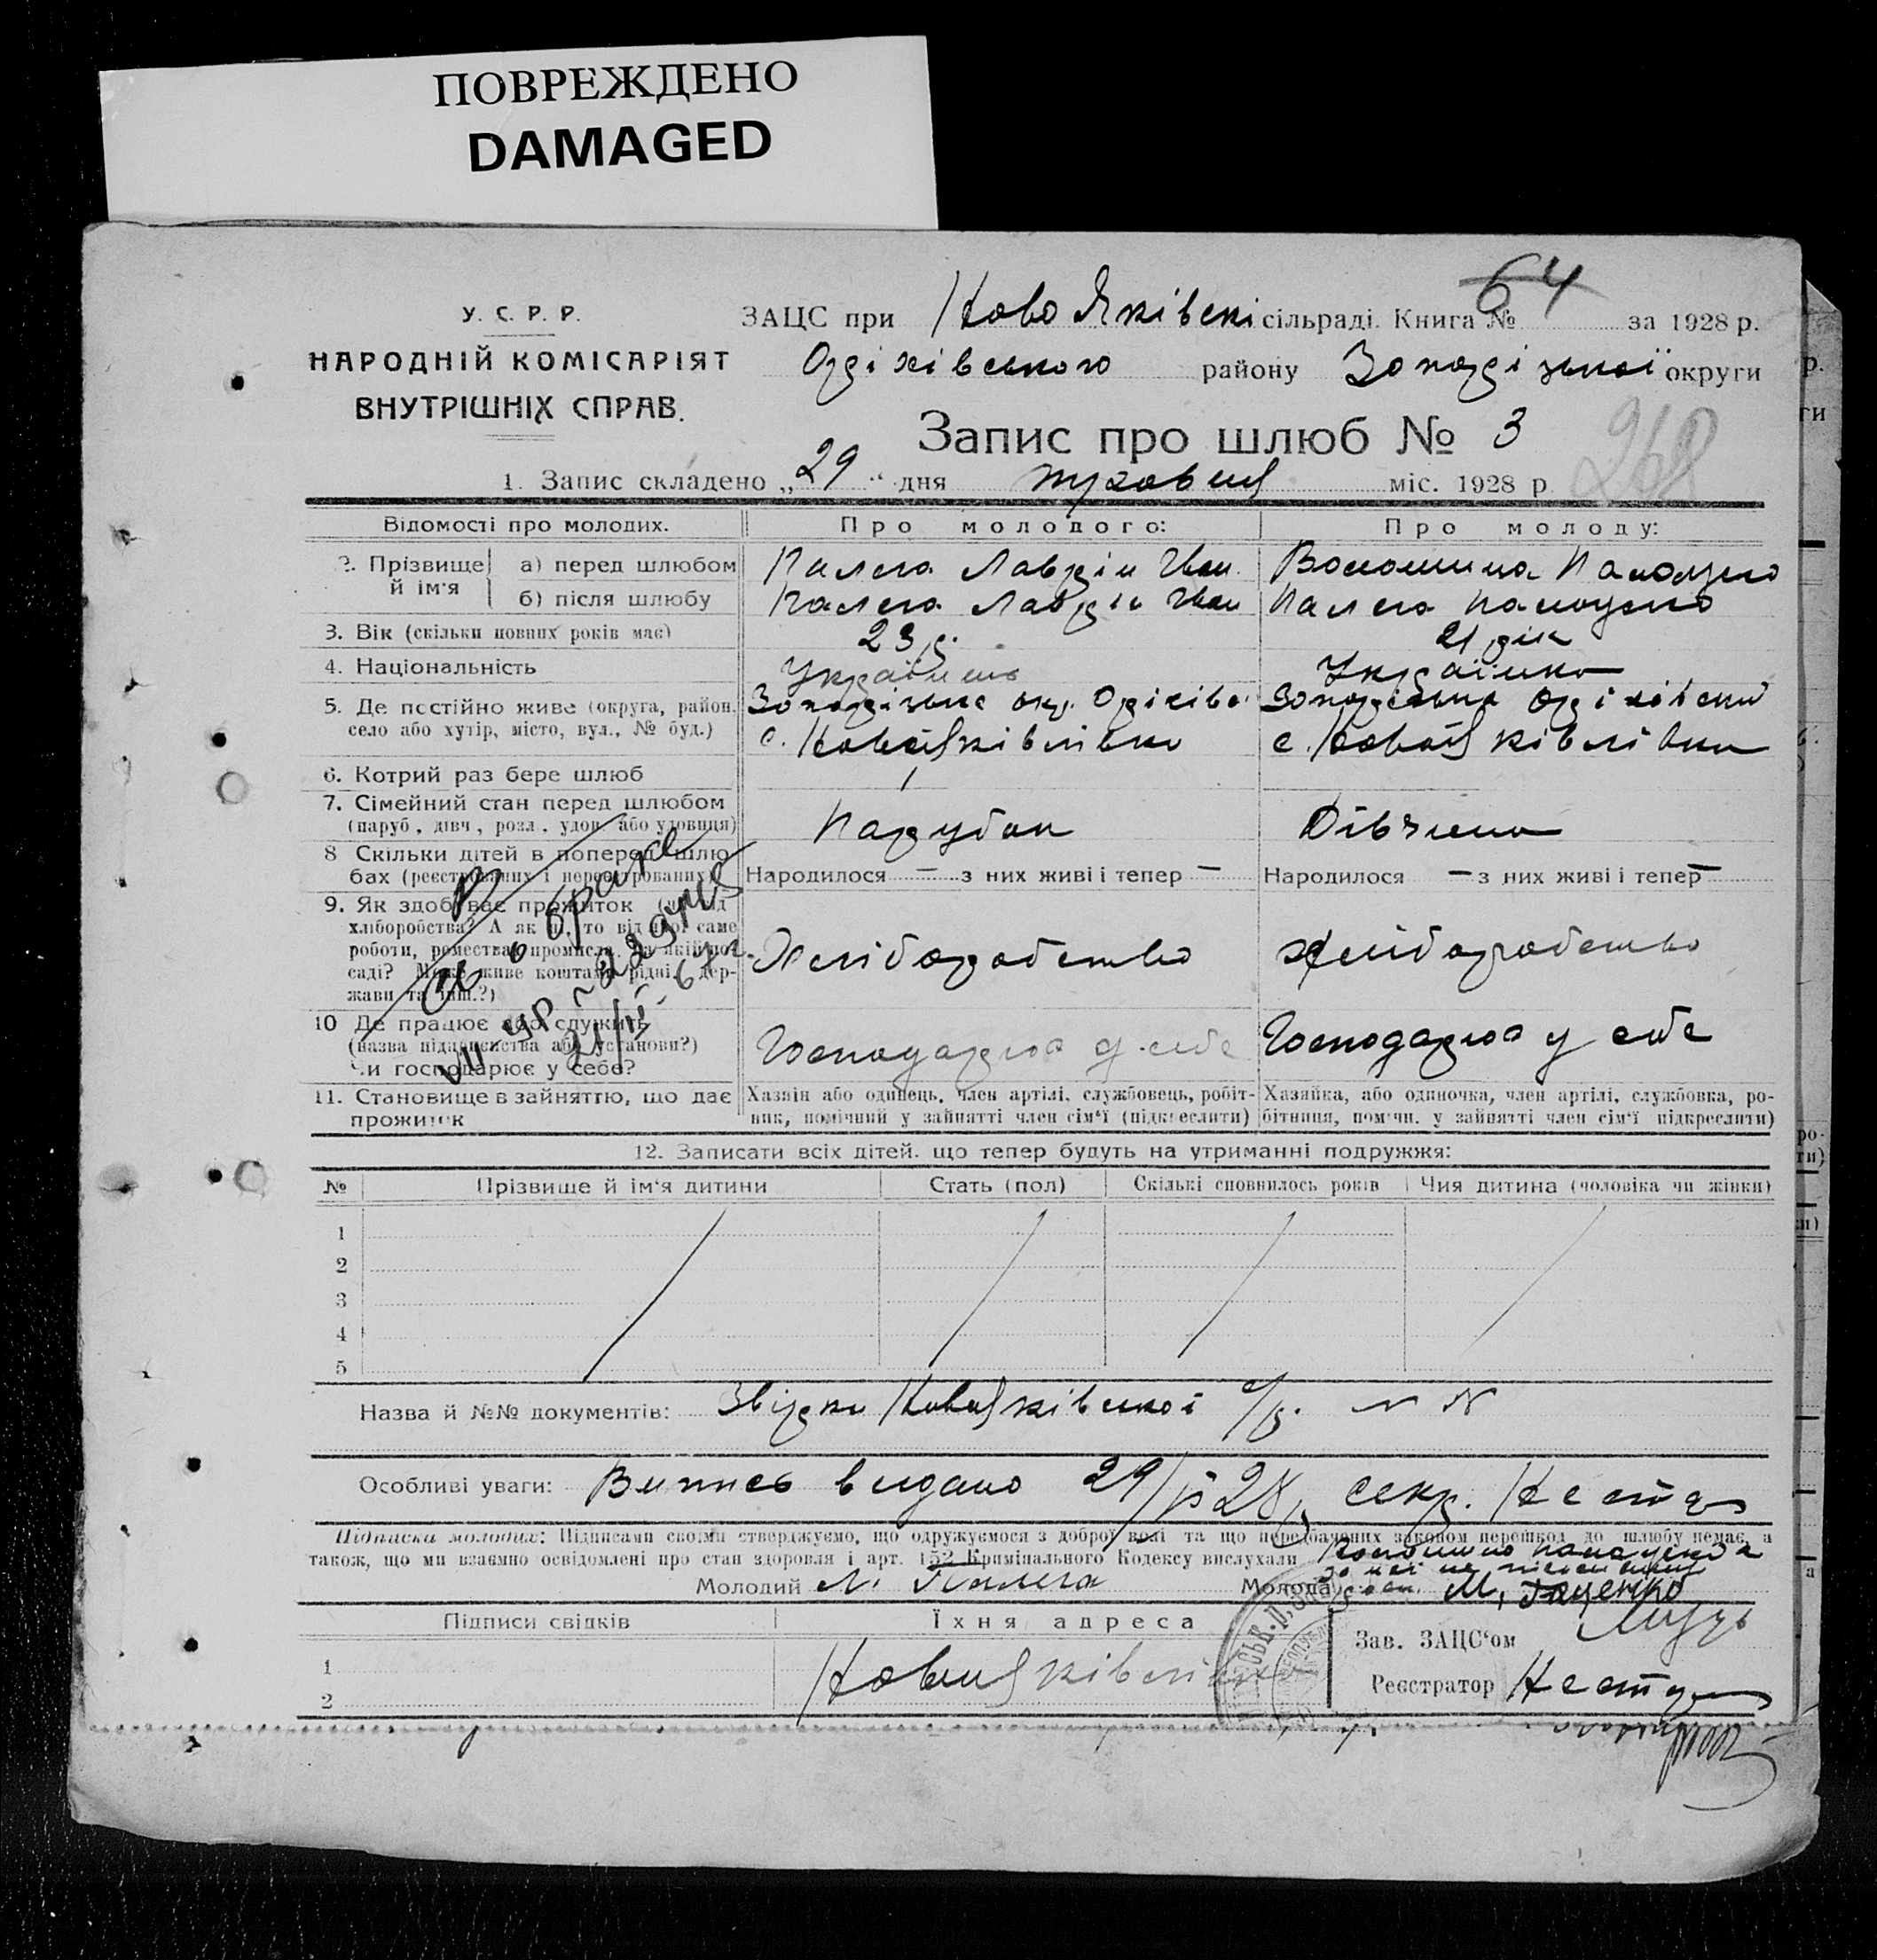 ПОВРЕЖДЕНО
DAMAGED
У. С. Р. Р.
НАРОДНІЙ КОМІСАРІЯТ
ВНУТРІШНІХ СПРАВ.
ЗАЦС при Ново Яківскі сільраді. Книга № 64 за 1928 р.
Оріхівського району Запорізької округи
Запис про шлюб № 3
268
1. Запис складено „29“ дня міс. 1928 р
Відомості про молодих. Про молодого: Про молоду:
2. Прізвище й ім'я
а) перед шлюбом Палега Лаврін Іван. Волошина Палажка
б) після шлюбу Палега Лаврін Іван Палега
3. Вік (скільки повних років має) 23 р. 21 рік
4. Національність Українець Українка
5. Де постійно живе (округа, район. Запорізька окр. Оріхівс Запорізька Оріхівськ
село або хутір, місто, вул., № буд.) с. Новояківлівка с. Новояківлівка
6. Котрий раз бере шлюб 1
7. Сімейний стан перед шлюбом
(паруб, дівч, розл. удов. або удовиця) Парубок Дівчина
8 Скільки дітей в поперед. шлю-
бах (реєстрованих і нереєстрованих) Народилося — з них живі і тепер — Народилося — з них живі і тепер —
9. Як здобуває прожиток
хліборобства? А як ні, то від якої саме
роботи, ремества, промисла, Хліборобство Хліборобство
саді? живе коштами рідні, дер-
жави та інш.?)
о браке
21/III-67г.
10 Де працює або служить
(назва підприємства або установи?) Господарює у себе Господарює у себе
Чи господарює у себе?
11. Становище в зайняттю, що дає Хазяїн або одинець, член артілі, службовець, робіт- Хазяйка, або одиночка, член артілі, службовка, ро-
прожиток ник, помічний у зайнятті член сім'ї (підкреслити) бітниця, помічн. у зайнятті член сім'ї підкреслити)
12. Записати всіх дітей, що тепер будуть на утриманні подружжя:
№ Прізвище й ім'я дитини Стать (пол) Скількі сповнилось років Чия дитина (чоловіка чи жінки)
1
2
3
4
5
Назва й №№ документів: Звідки Новояківської с/р.
Особливі уваги: Випись видано 29/ 28 секр.
Підписи молодих: Підписами своїми стверджуємо, що одружуємося з доброї волі та що передбачених законом перешкод до шлюбу немає, а
також, що ми взаємно освідомлені про стан здоровля і арт. 152 Кримінального Кодексу вислухали
Молодий Л. Палега Молода М.
Підписи свідків Їхня адреса Зав. ЗАЦС'ом
1 Новояківлівка
2 Реєстратор